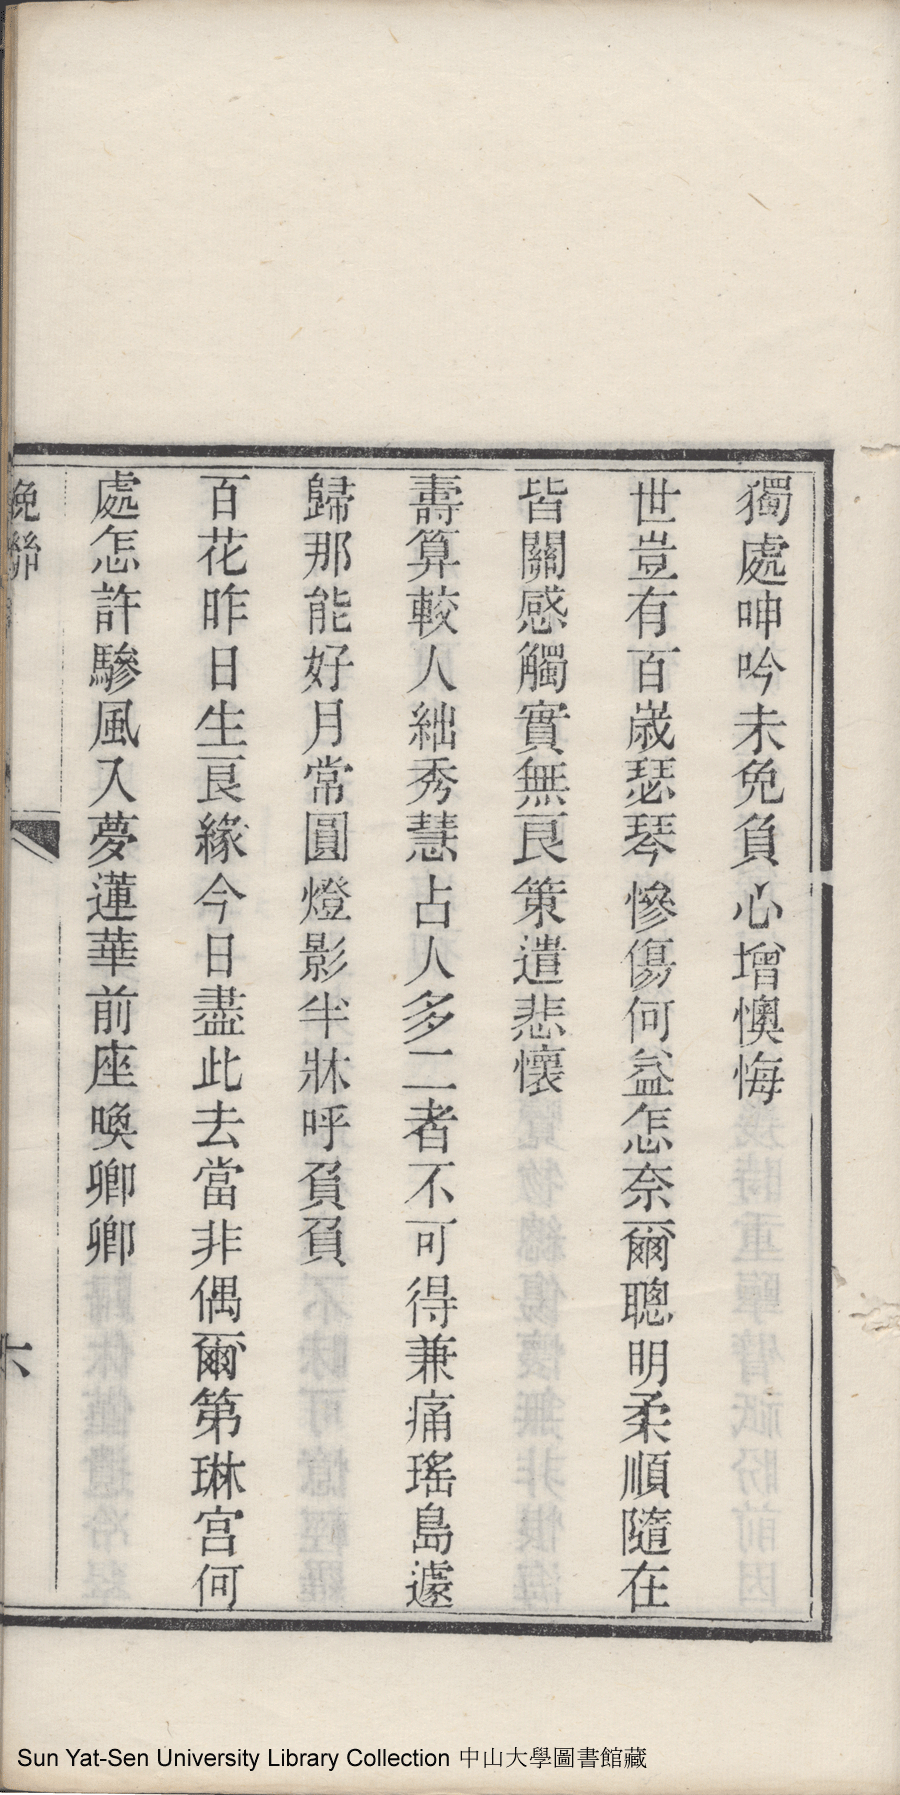 獨處呻吟未免負心增懊悔
世豈有百歲瑟琴慘傷何益怎奈爾聰明柔順隨在
皆關感觸實無良策遣悲懷
壽算較人絀秀慧占人多二者不可得兼痛瑤島遽
歸那能好月常圓燈影半牀呼負負
百花昨日生良緣今日盡此去當非偶爾第琳宮何
處怎許驂風入夢蓮華前座喚卿卿
挽聯
六
Sun Yat-Sen University Library Collection 中山大學圖書館藏